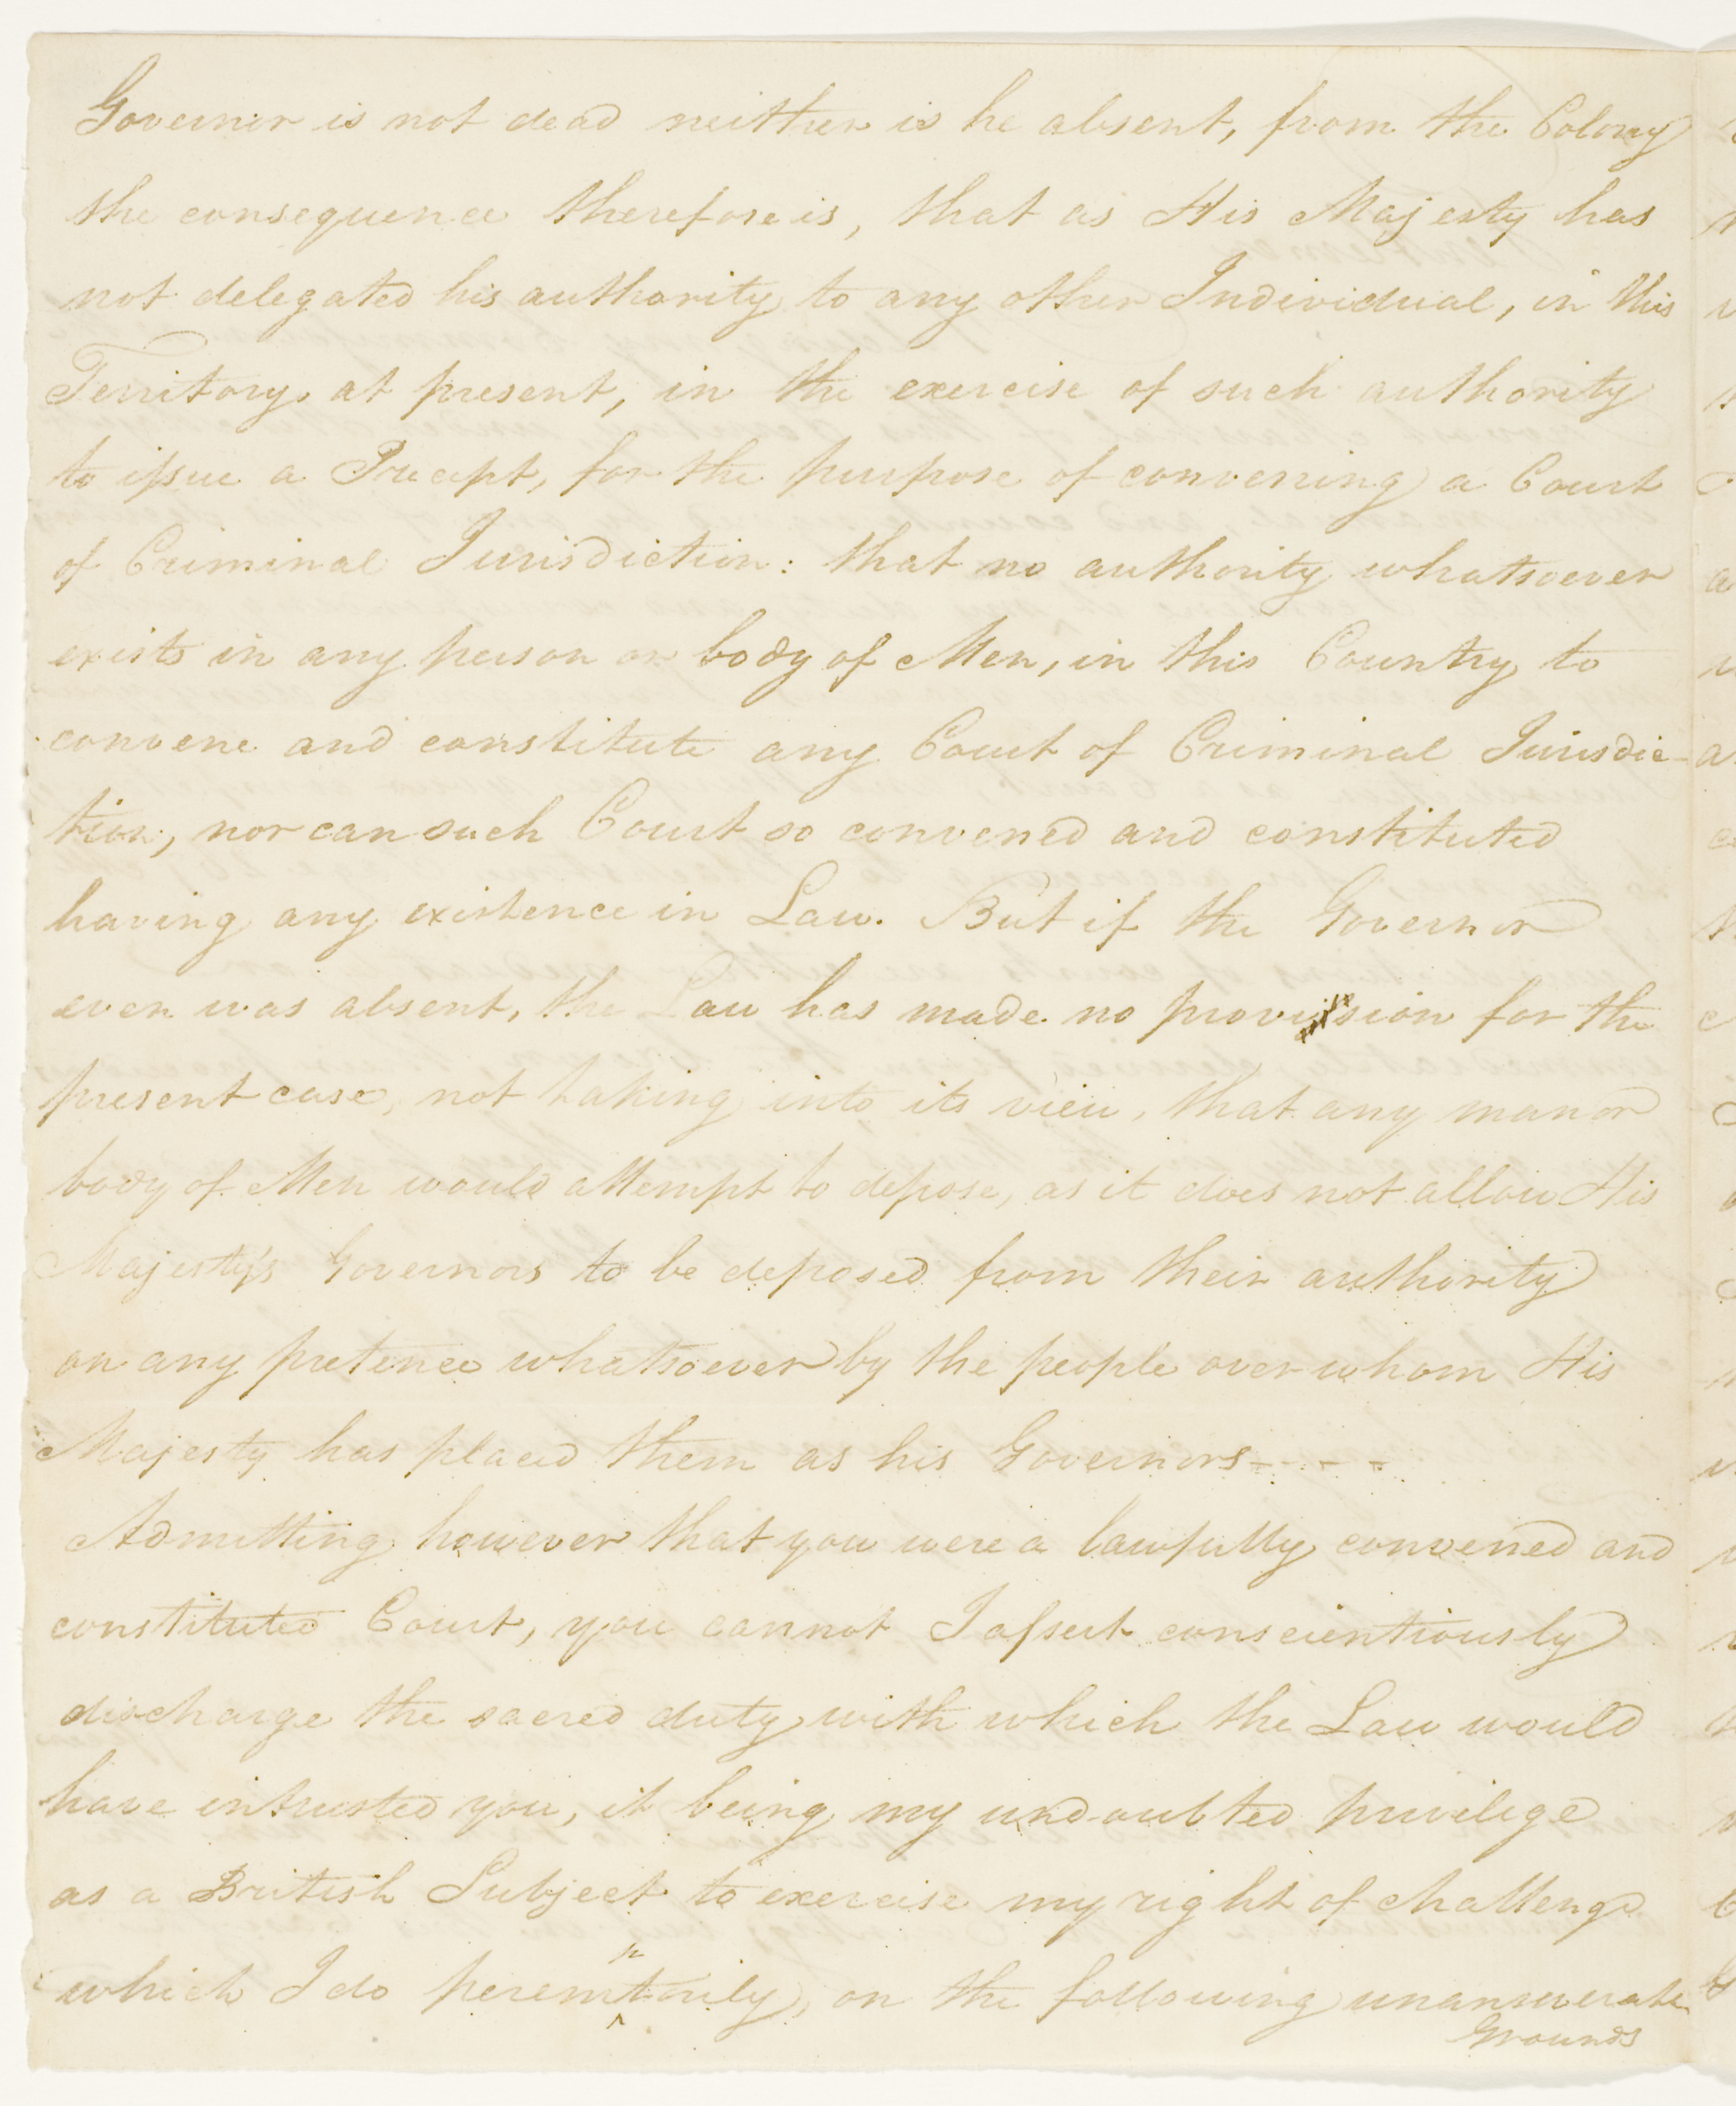 Governor is not dead neither is he absent, from the Colony
the consequence therefore is, that as His Majesty has
not delegated his authority to any other Individual, in this
Territory at present, in the exercise of such authority
to issue a Precept, for the purpose of convening a Court
of Criminal Jurisdiction: that no authority whatsoever
exists in any person or body of Men, in this Country to
convene and constitute any Court of Criminal Jurisdic-
tion, nor can such Court so convened and constituted
having any existence in Law. But if the Governor
even was absent, the Law has made no provision for the
present case, not taking into its view, that any man or
body of Men would attempt to depose, as it does not allow His
Majesty's Governors to be deposed from their authority
on any pretence whatsoever by the people over whom His
Majesty has placed them as his Governors - - - -
Admitting however that you were a lawfully convened and
constituted Court, you cannot I assert conscientiously
discharge the sacred duty with which the Law would
have intrusted you, it being my undoubted privilege
as a British Subject to exercise my right of challenge
which I do peremptorily, on the following unanswerable
Grounds